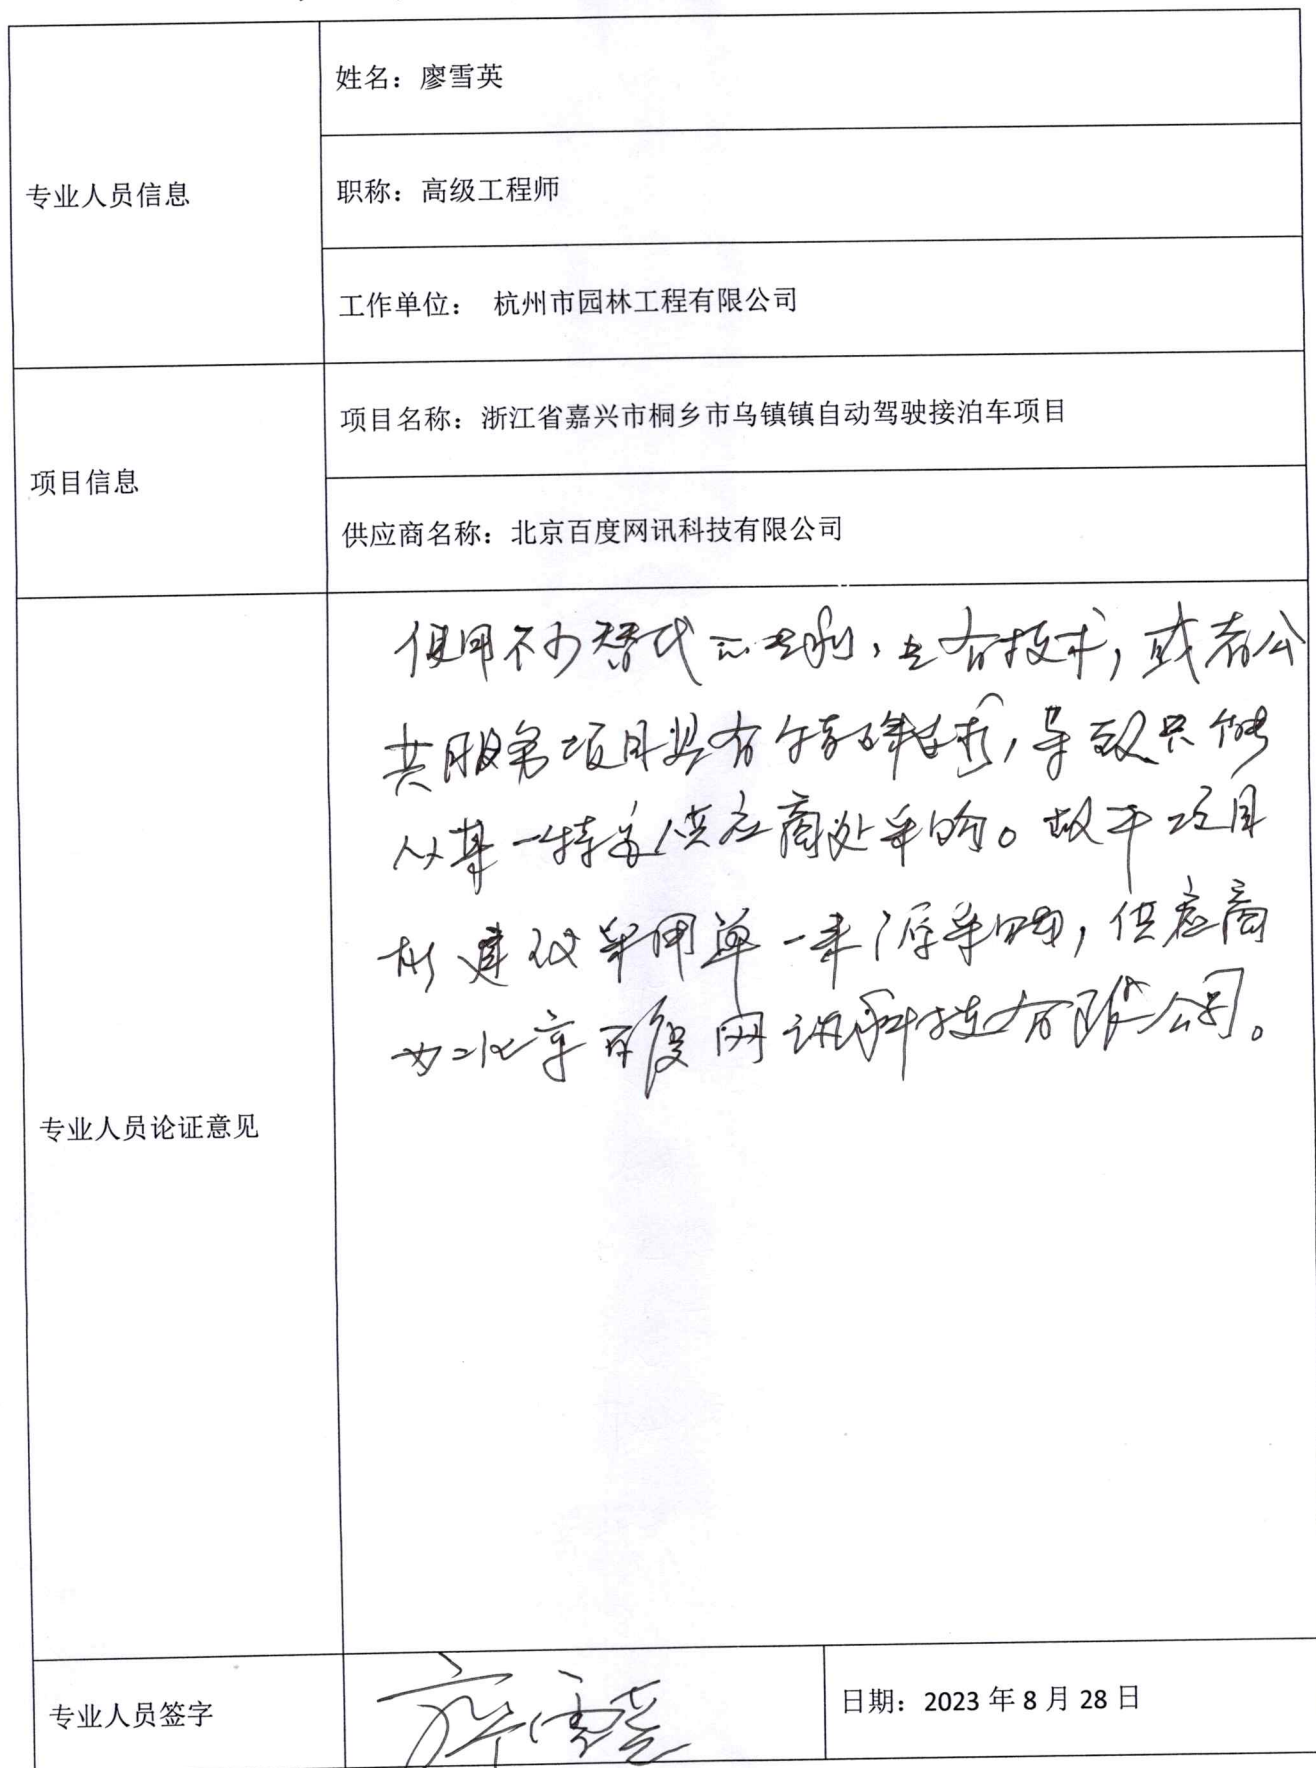 专业人员信息
姓名：廖雪英
职称：高级工程师
工作单位： 杭州市园林工程有限公司
项目信息
项目名称：浙江省嘉兴市桐乡市乌镇镇自动驾驶接泊车项目
供应商名称：北京百度网讯科技有限公司
专业人员论证意见
使用不可替代的专利，专有技术，或者公
共服务项目具有特殊要求，导致只能
从某一特定供应商处采购。故本项目
建议采用单一来源采购，供应商
为北京百度网讯科技有限公司。
专业人员签字
廖雪英
日期：2023 年 8 月 28 日